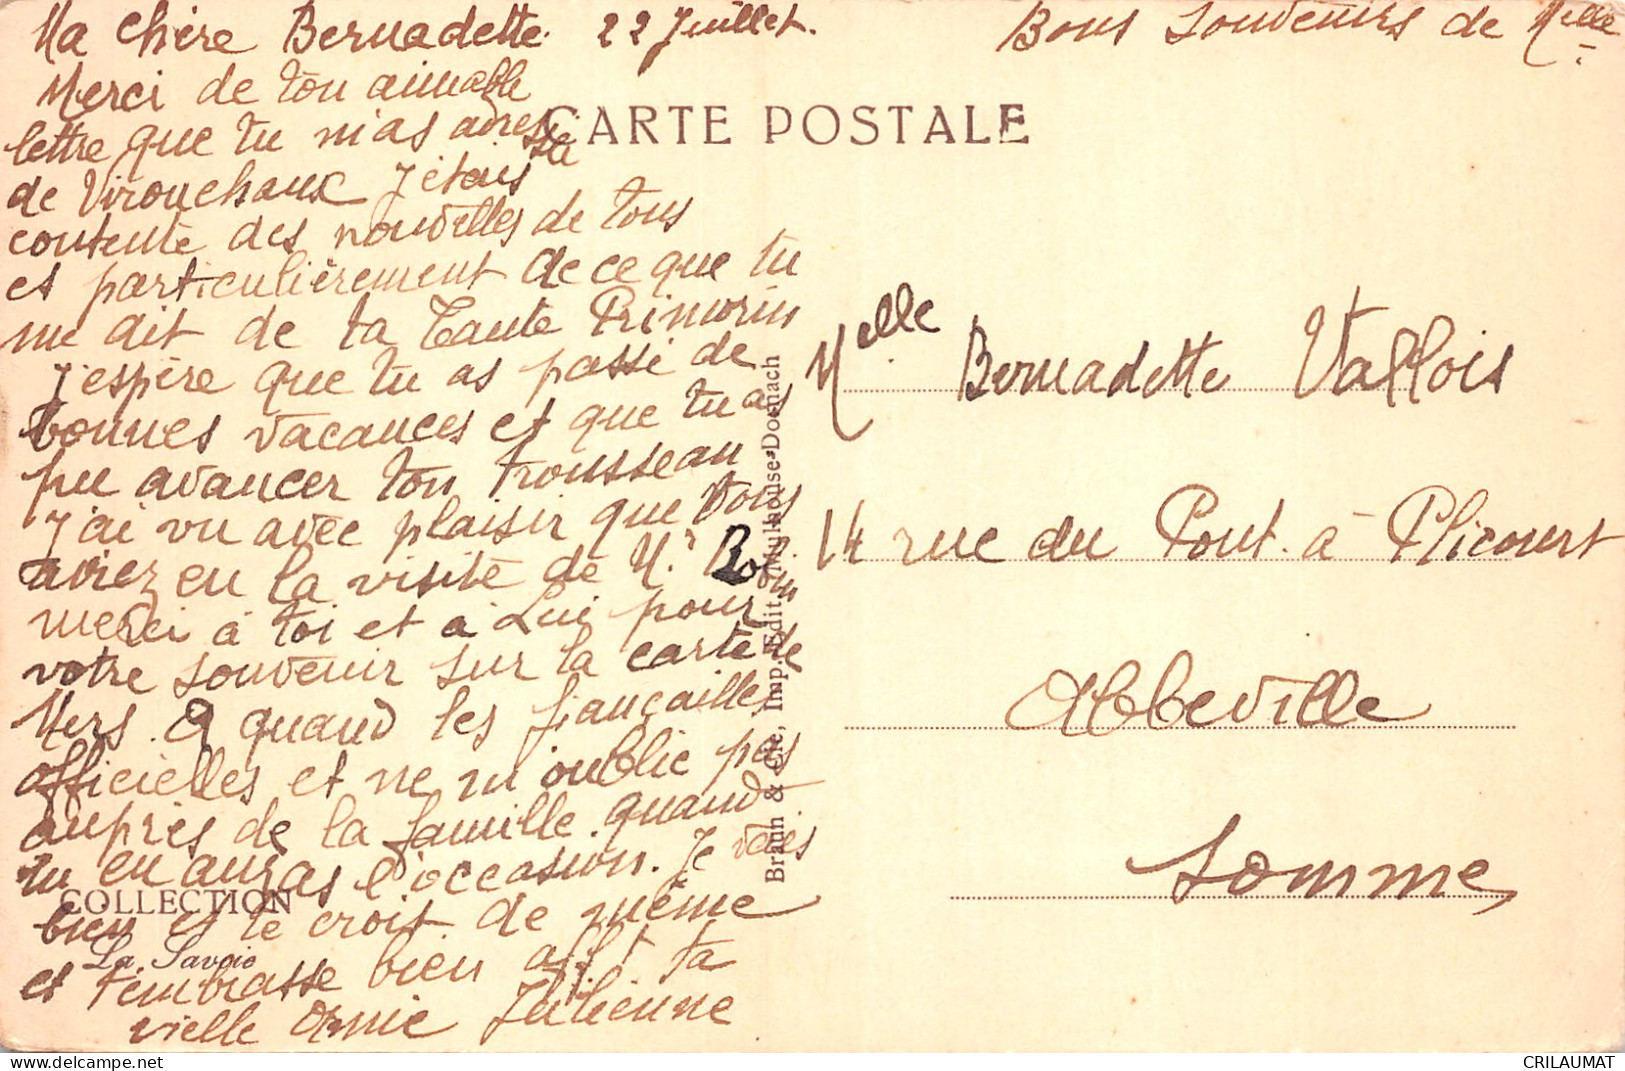 Ma chère Bernadette. 22 Juillet.
Bons Souvenirs de Melle
Merci de ton aimable
lettre que tu m'as adressé
de Vironchaux J'étais
contente des nouvelles de tous
et particulièrement de ce que tu
me dit de ta Tante
J'espère que tu as passé de
bonnes vacances et que tu as
pu avancer ton trousseau
J'ai vu avec plaisir que vous
aviez eu la visite de Mr
merci à toi et à Lui pour
votre souvenir sur la carte de
Mers. A quand les fiançailles
officielles et ne m'oublie pas
auprès de la famille quand
tu en auras l'occasion. Je vais
bien et te croit de même
et t'embrasse bien afft ta
vieille Amie Julienne
CARTE POSTALE
Melle Bernadette Vallois
14 rue du Pont à Plicourt
Abbeville
Somme
Braun & Cie, Imp. Edit. Mulhouse-Dornach
COLLECTION
La Savoie
CRILAUMAT